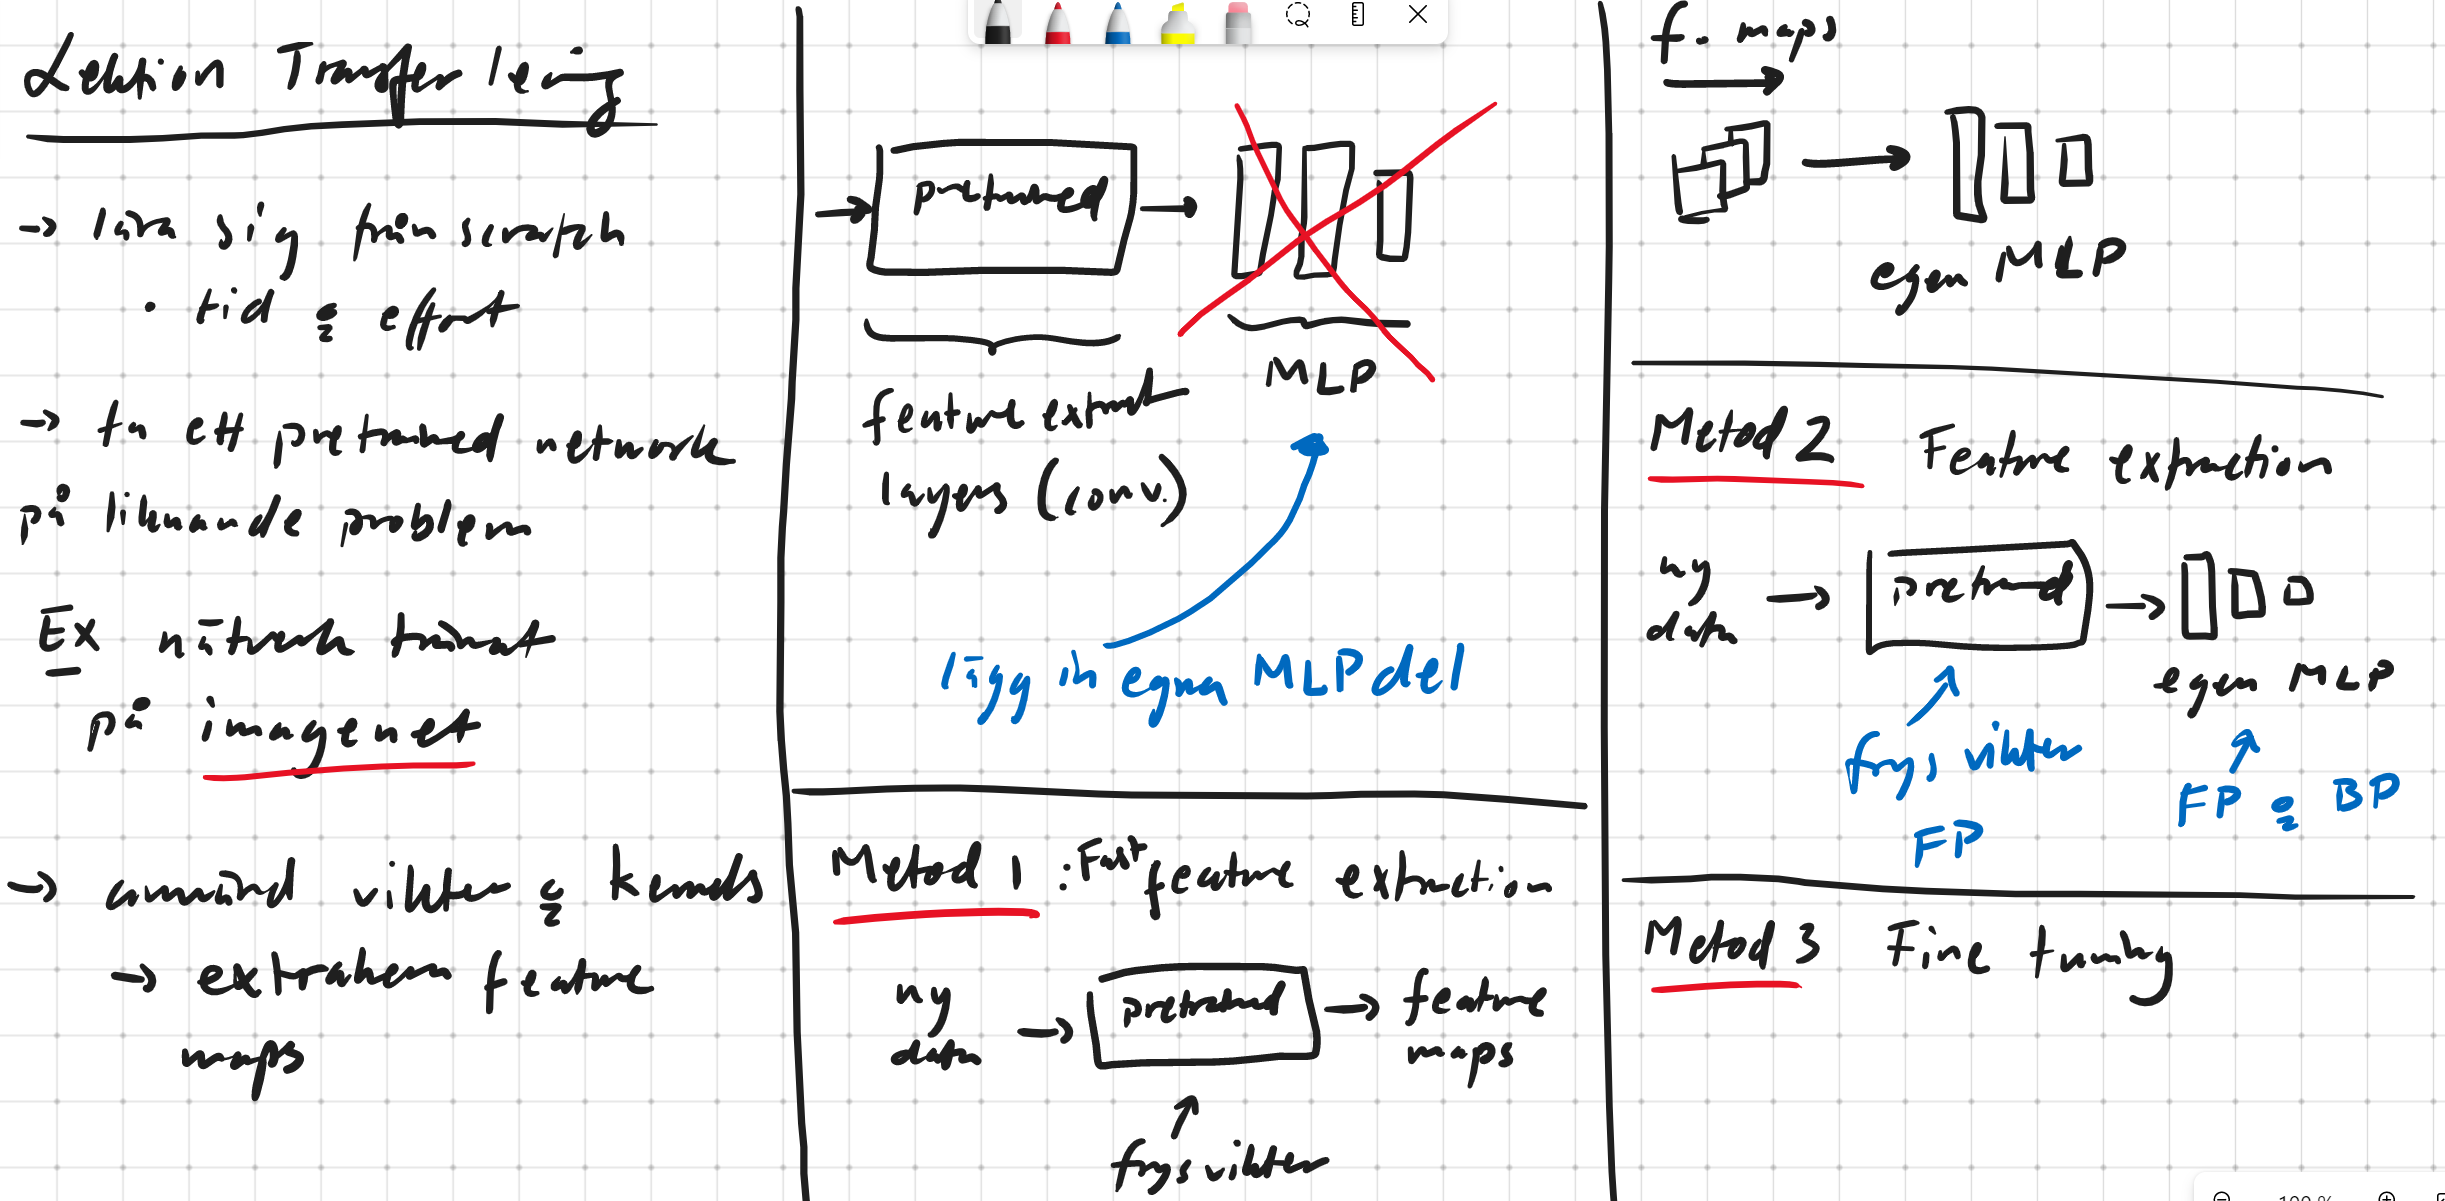 Lektion Transfer lering
→ lära sig från scratch
• tid & effort
→ ta ett pretrained network
på liknande problem
Ex nätverk tränat
på imagenet
→ använd vikter & kernels
→ extrahera feature
maps
pretrained
MLP
feature extract
layers (conv.)
lägg in egna MLP del
Metod 1 : Fast feature extraction
ny
data
→ pretrained → feature
maps
frys vikter
f. maps
egen MLP
Metod 2 Feature extraction
ny
data
→ pretrained →
egen MLP
frys vikter
FP
FP & BP
Metod 3 Fine tuning